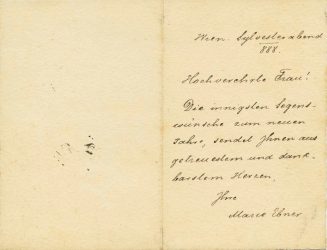 Wien. Sylvesterabend
888.
Hochverehrte Frau!
Die innigsten Segens-
wünsche zum neuen
Jahre, sendet Ihnen aus
getreuestem und dank-
barstem Herzen,
Ihre
Marie Ebner